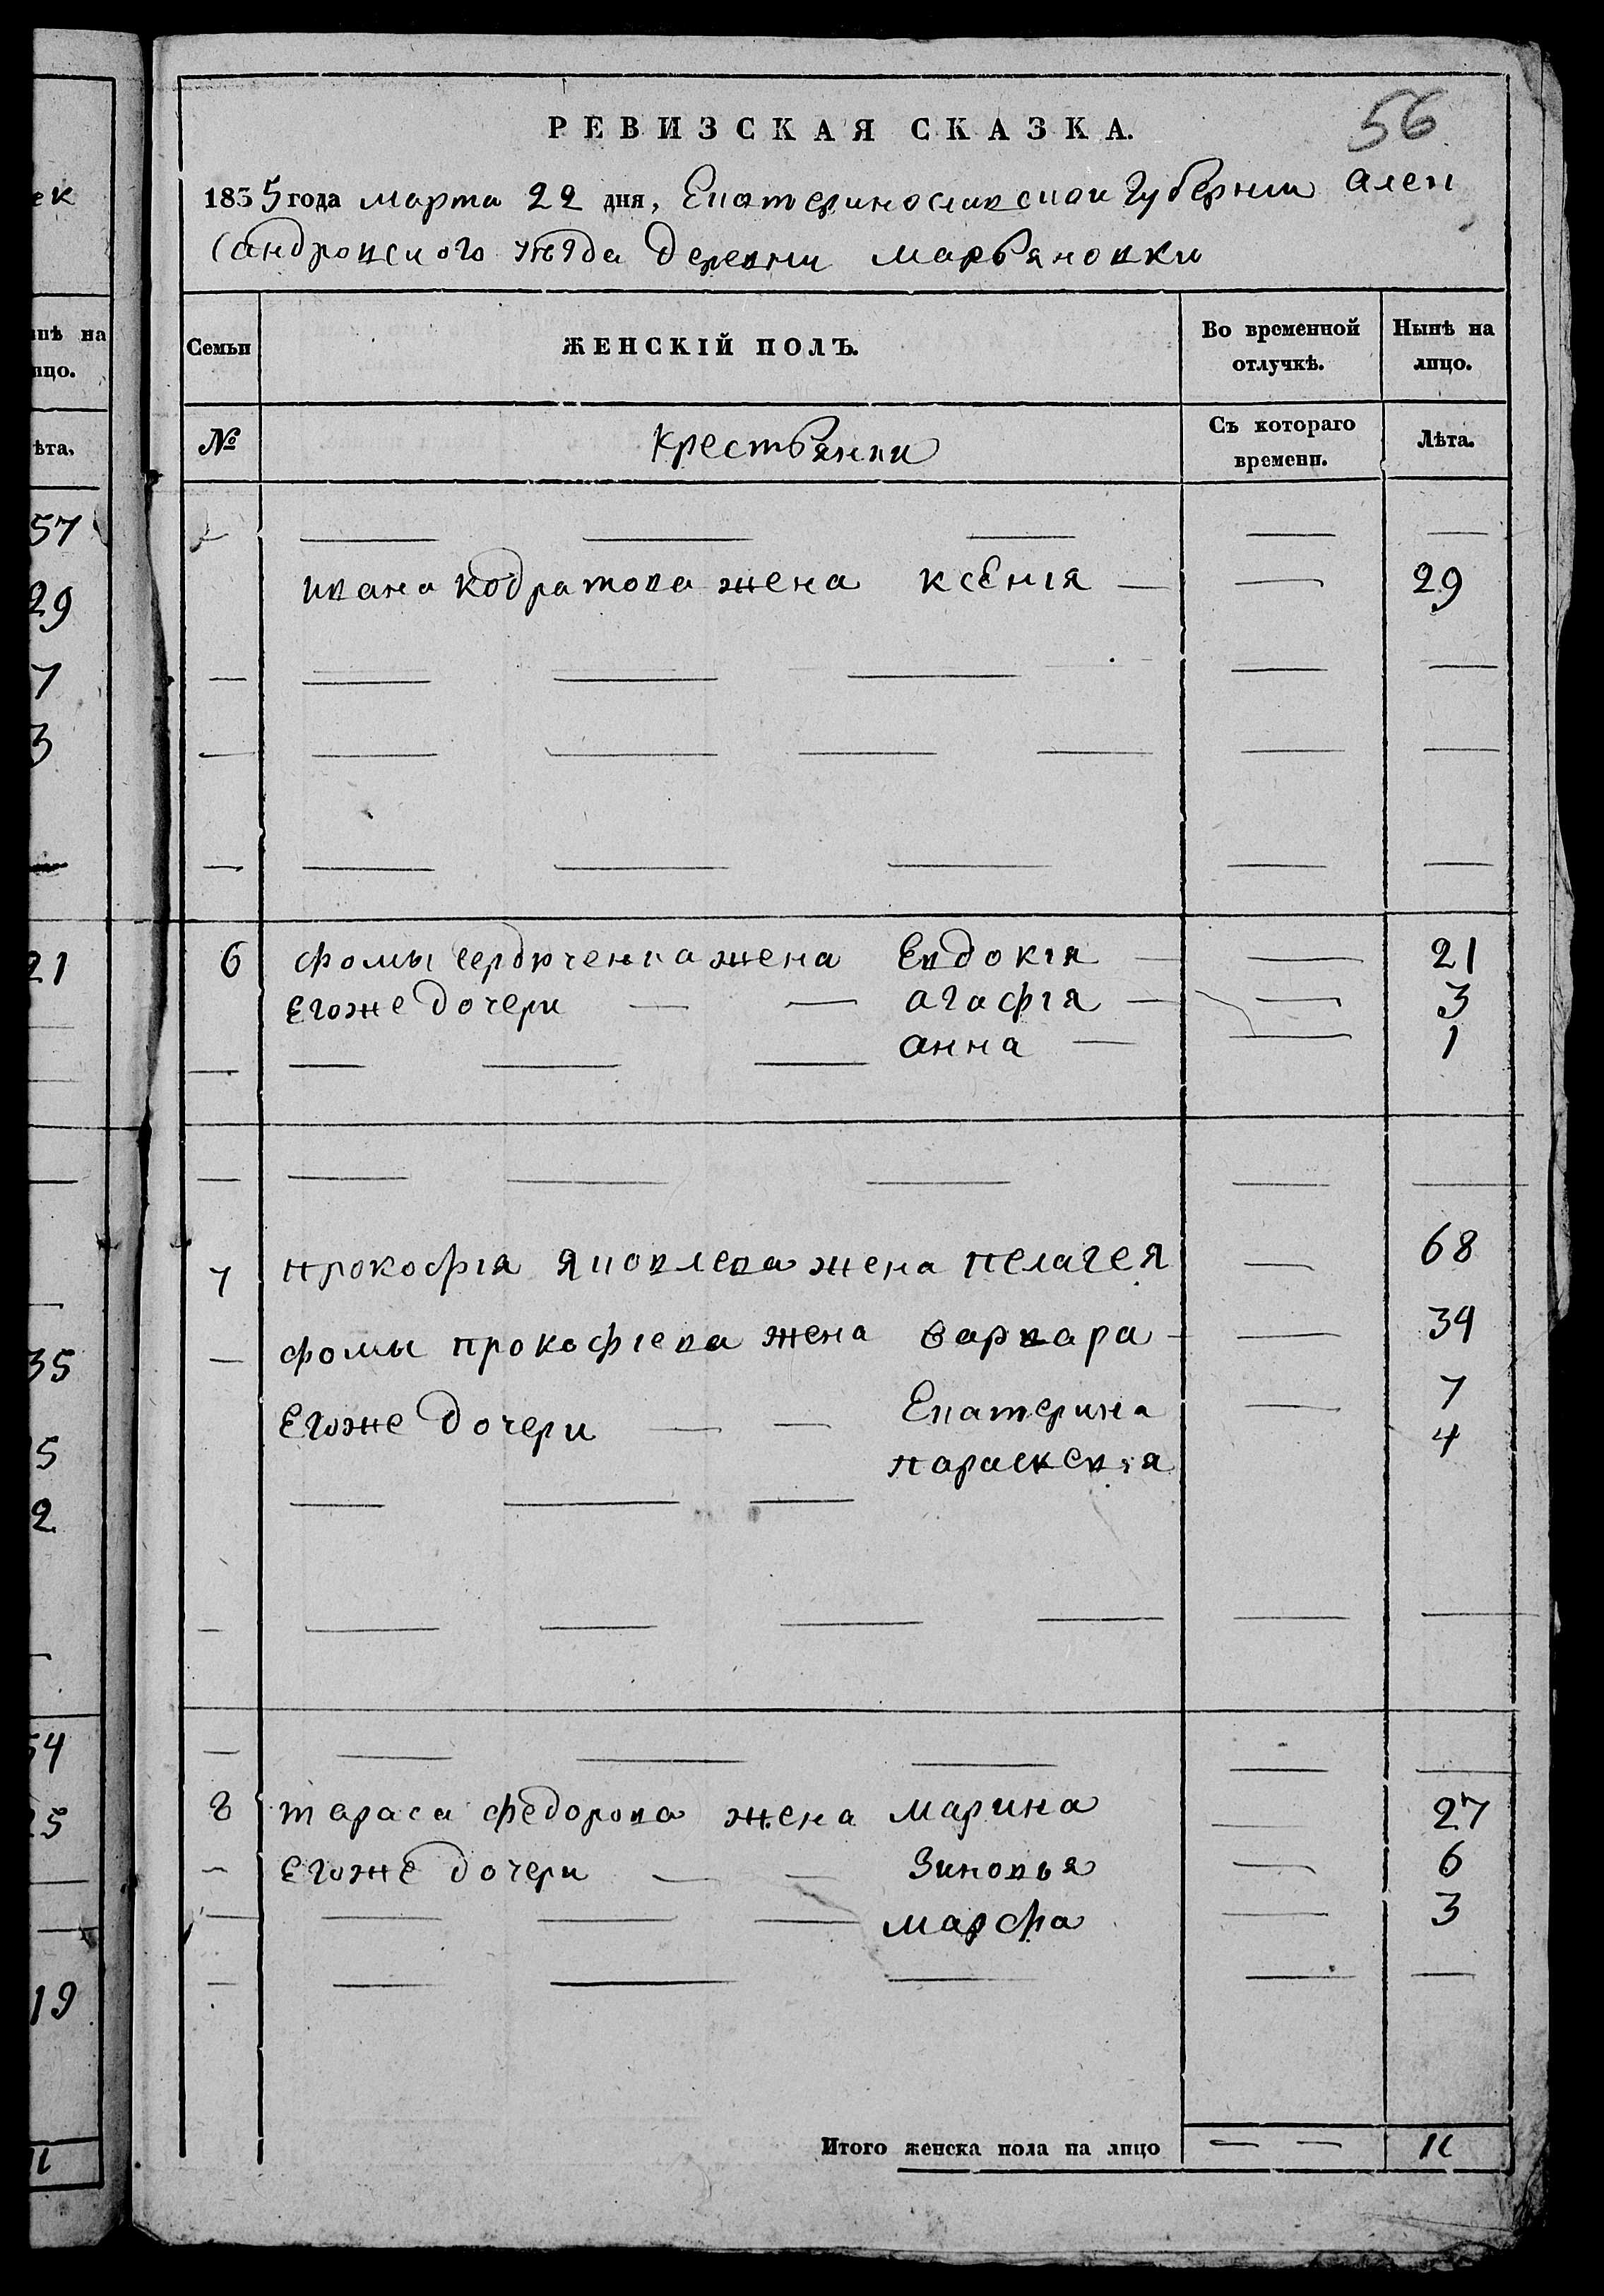 56
РЕВИЗСКАЯ СКАЗКА.
1855 года марта 22 дня, Екатеринославской Губернии Алек
сандровского уѣзда деревни марьяновки
Семьи
ЖЕНСКІЙ ПОЛЪ.
Во временной отлучкѣ.
Нынѣ на лицо.
№
Крестьянки
Съ котораго времени.
Лѣта.
ивана кодратова жена ксенія — — 29
6 фомы сердюченка жена Евдокія — — 21
Егоже дочери — — агафія — — 3
— — — — анна — — 1
7 прокофія яковлева жена пелагея — 68
— фомы прокофіева жена варвара — — 34
Егоже дочери — — Екатерина — 7
параскевія 4
8 тараса федорова жена марина — 27
— Егоже дочери — — Зиновья — 6
— — — — марфа — 3
Итого женска пола на лицо — — 11
ек
нѣ на
ицо.
ѣта.
57
29
7
3
21
35
5
2
54
25
19
11